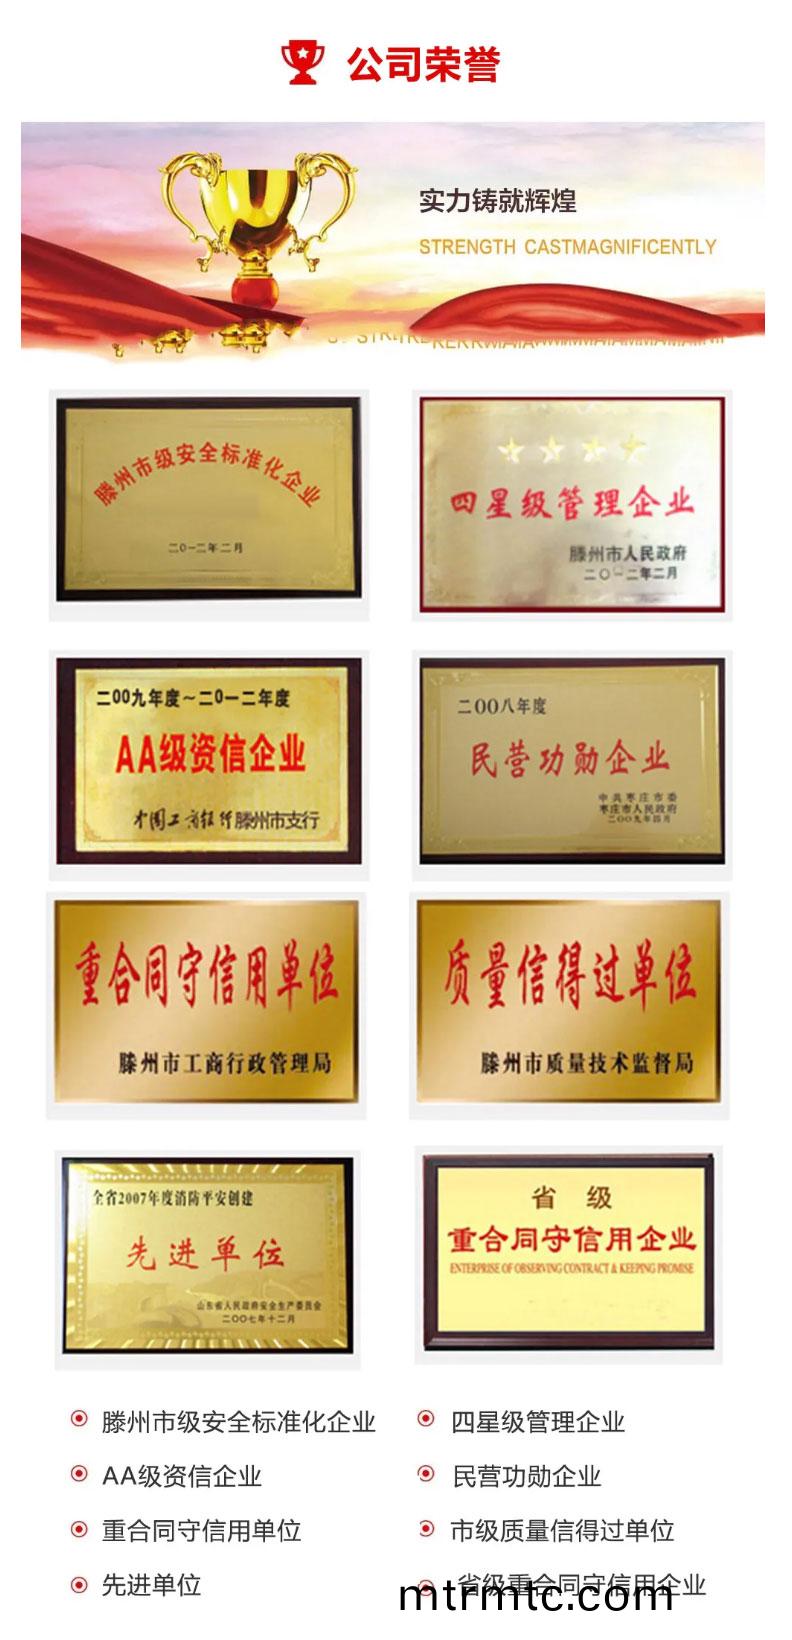 公司荣誉
实力铸就辉煌
STRENGTH CASTMAGNIFICENTLY
滕州市级安全标准化企业
二〇一二年二月
四星级管理企业
滕州市人民政府
二〇一二年二月
二00九年度~二0一二年度
AA级资信企业
中国工商银行滕州市支行
二00八年度
民营功勋企业
中共枣庄市委
枣庄市人民政府
二〇〇九年四月
重合同守信用单位
滕州市工商行政管理局
质量信得过单位
滕州市质量技术监督局
全省2007年度消防平安创建
先进单位
山东省人民政府安全生产委员会
二〇〇七年十二月
省 级
重合同守信用企业
ENTERPRISE OF OBSERVING CONTRACT & KEEPING PROMISE
滕州市级安全标准化企业
四星级管理企业
AA级资信企业
民营功勋企业
重合同守信用单位
市级质量信得过单位
先进单位
省级重合同守信用企业
mtrmtc.com